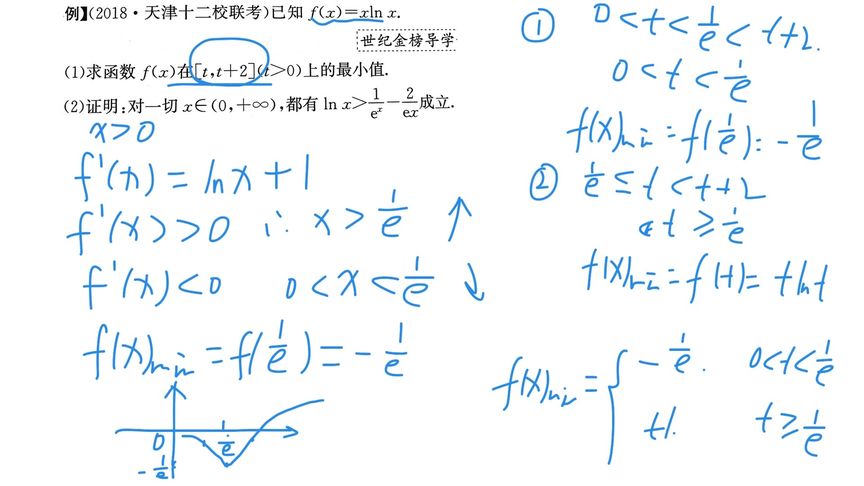 例】(2018·天津十二校联考)已知 f(x)=xln x.
世纪金榜导学
(1)求函数 f(x)在[t,t+2](t>0)上的最小值.
(2)证明:对一切 x∈(0,+∞),都有 ln x>1/eˣ-2/ex成立.
x>0
f'(x)=lnx+1
f'(x)>0 ∴ x>1/e ↑
f'(x)<0 0<x<1/e ↓
f(x)min=f(1/e)=-1/e
0 1/e
-1/e
① 0<t<1/e<t+2.
0<t<1/e
f(x)min=f(1/e)=-1/e
② 1/e≤t<t+2
t≥1/e
f(x)min=f(t)=tlnt
f(x)min={-1/e. 0<t<1/e
tl. t≥1/e